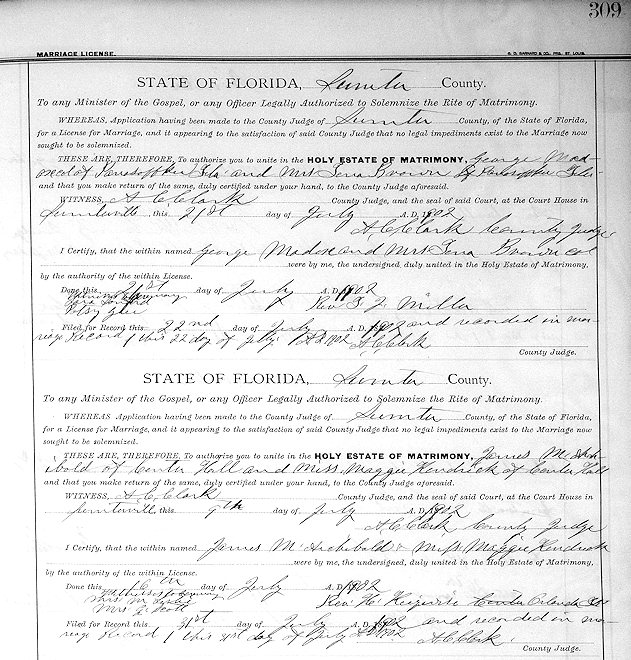 309
MARRIAGE LICENSE. G. D. BARNARD & CO., PRS. ST. LOUIS.
STATE OF FLORIDA, Sumter County.
To any Minister of the Gospel, or any Officer Legally Authorized to Solemnize the Rite of Matrimony.
WHEREAS, Application having been made to the County Judge of Sumter County, of the State of Florida,
for a License for Marriage, and it appearing to the satisfaction of said County Judge that no legal impediments exist to the Marriage now
sought to be solemnized.
THESE ARE, THEREFORE, To authorize you to unite in the HOLY ESTATE OF MATRIMONY, George
of and Mrs Brown
and that you make return of the same, duly certified under your hand, to the County Judge aforesaid.
WITNESS, A C Clark County Judge, and the seal of said Court, at the Court House in
Sumterville this 21st day of July A. D. 1902
A C Clark County Judge
I Certify, that the within named George and Mrs Brown
were by me, the undersigned, duly united in the Holy Estate of Matrimony,
by the authority of the within License.
Done this 21st day of July A. D. 1902
Rev. Miller
Filed for Record this 22nd day of July 1902 and recorded in mar-
riage Record 1 this 22 day of July A D 1902 A C Clark
County Judge.
STATE OF FLORIDA, Sumter County.
To any Minister of the Gospel, or any Officer Legally Authorized to Solemnize the Rite of Matrimony.
WHEREAS Application having been made to the County Judge of Sumter County, of the State of Florida,
for a License for Marriage, and it appearing to the satisfaction of said County Judge that no legal impediments exist to the Marriage now
sought to be solemnized.
THESE ARE, THEREFORE, To authorize you to unite in the HOLY ESTATE OF MATRIMONY, James M Arch-
ibold of Center Hall and Miss Maggie Hendrick of Center Hall
and that you make return of the same, duly certified under your hand, to the County Judge aforesaid.
WITNESS, A C Clark County Judge, and the seal of said Court, at the Court House in
Sumterville this 9th day of July A. D. 1902
A C Clark County Judge
I Certify, that the within named James M Archibold & Miss Maggie Hendrick
were by me, the undersigned, duly united in the Holy Estate of Matrimony,
by the authority of the within License.
Done this day of July A. D. 1902
Mrs Scott Rev.
Filed for Record this 31st day of July 1902 and recorded in ma-
riage Record 1 this 31st day of July A D 1902 A C Clark
County Judge.